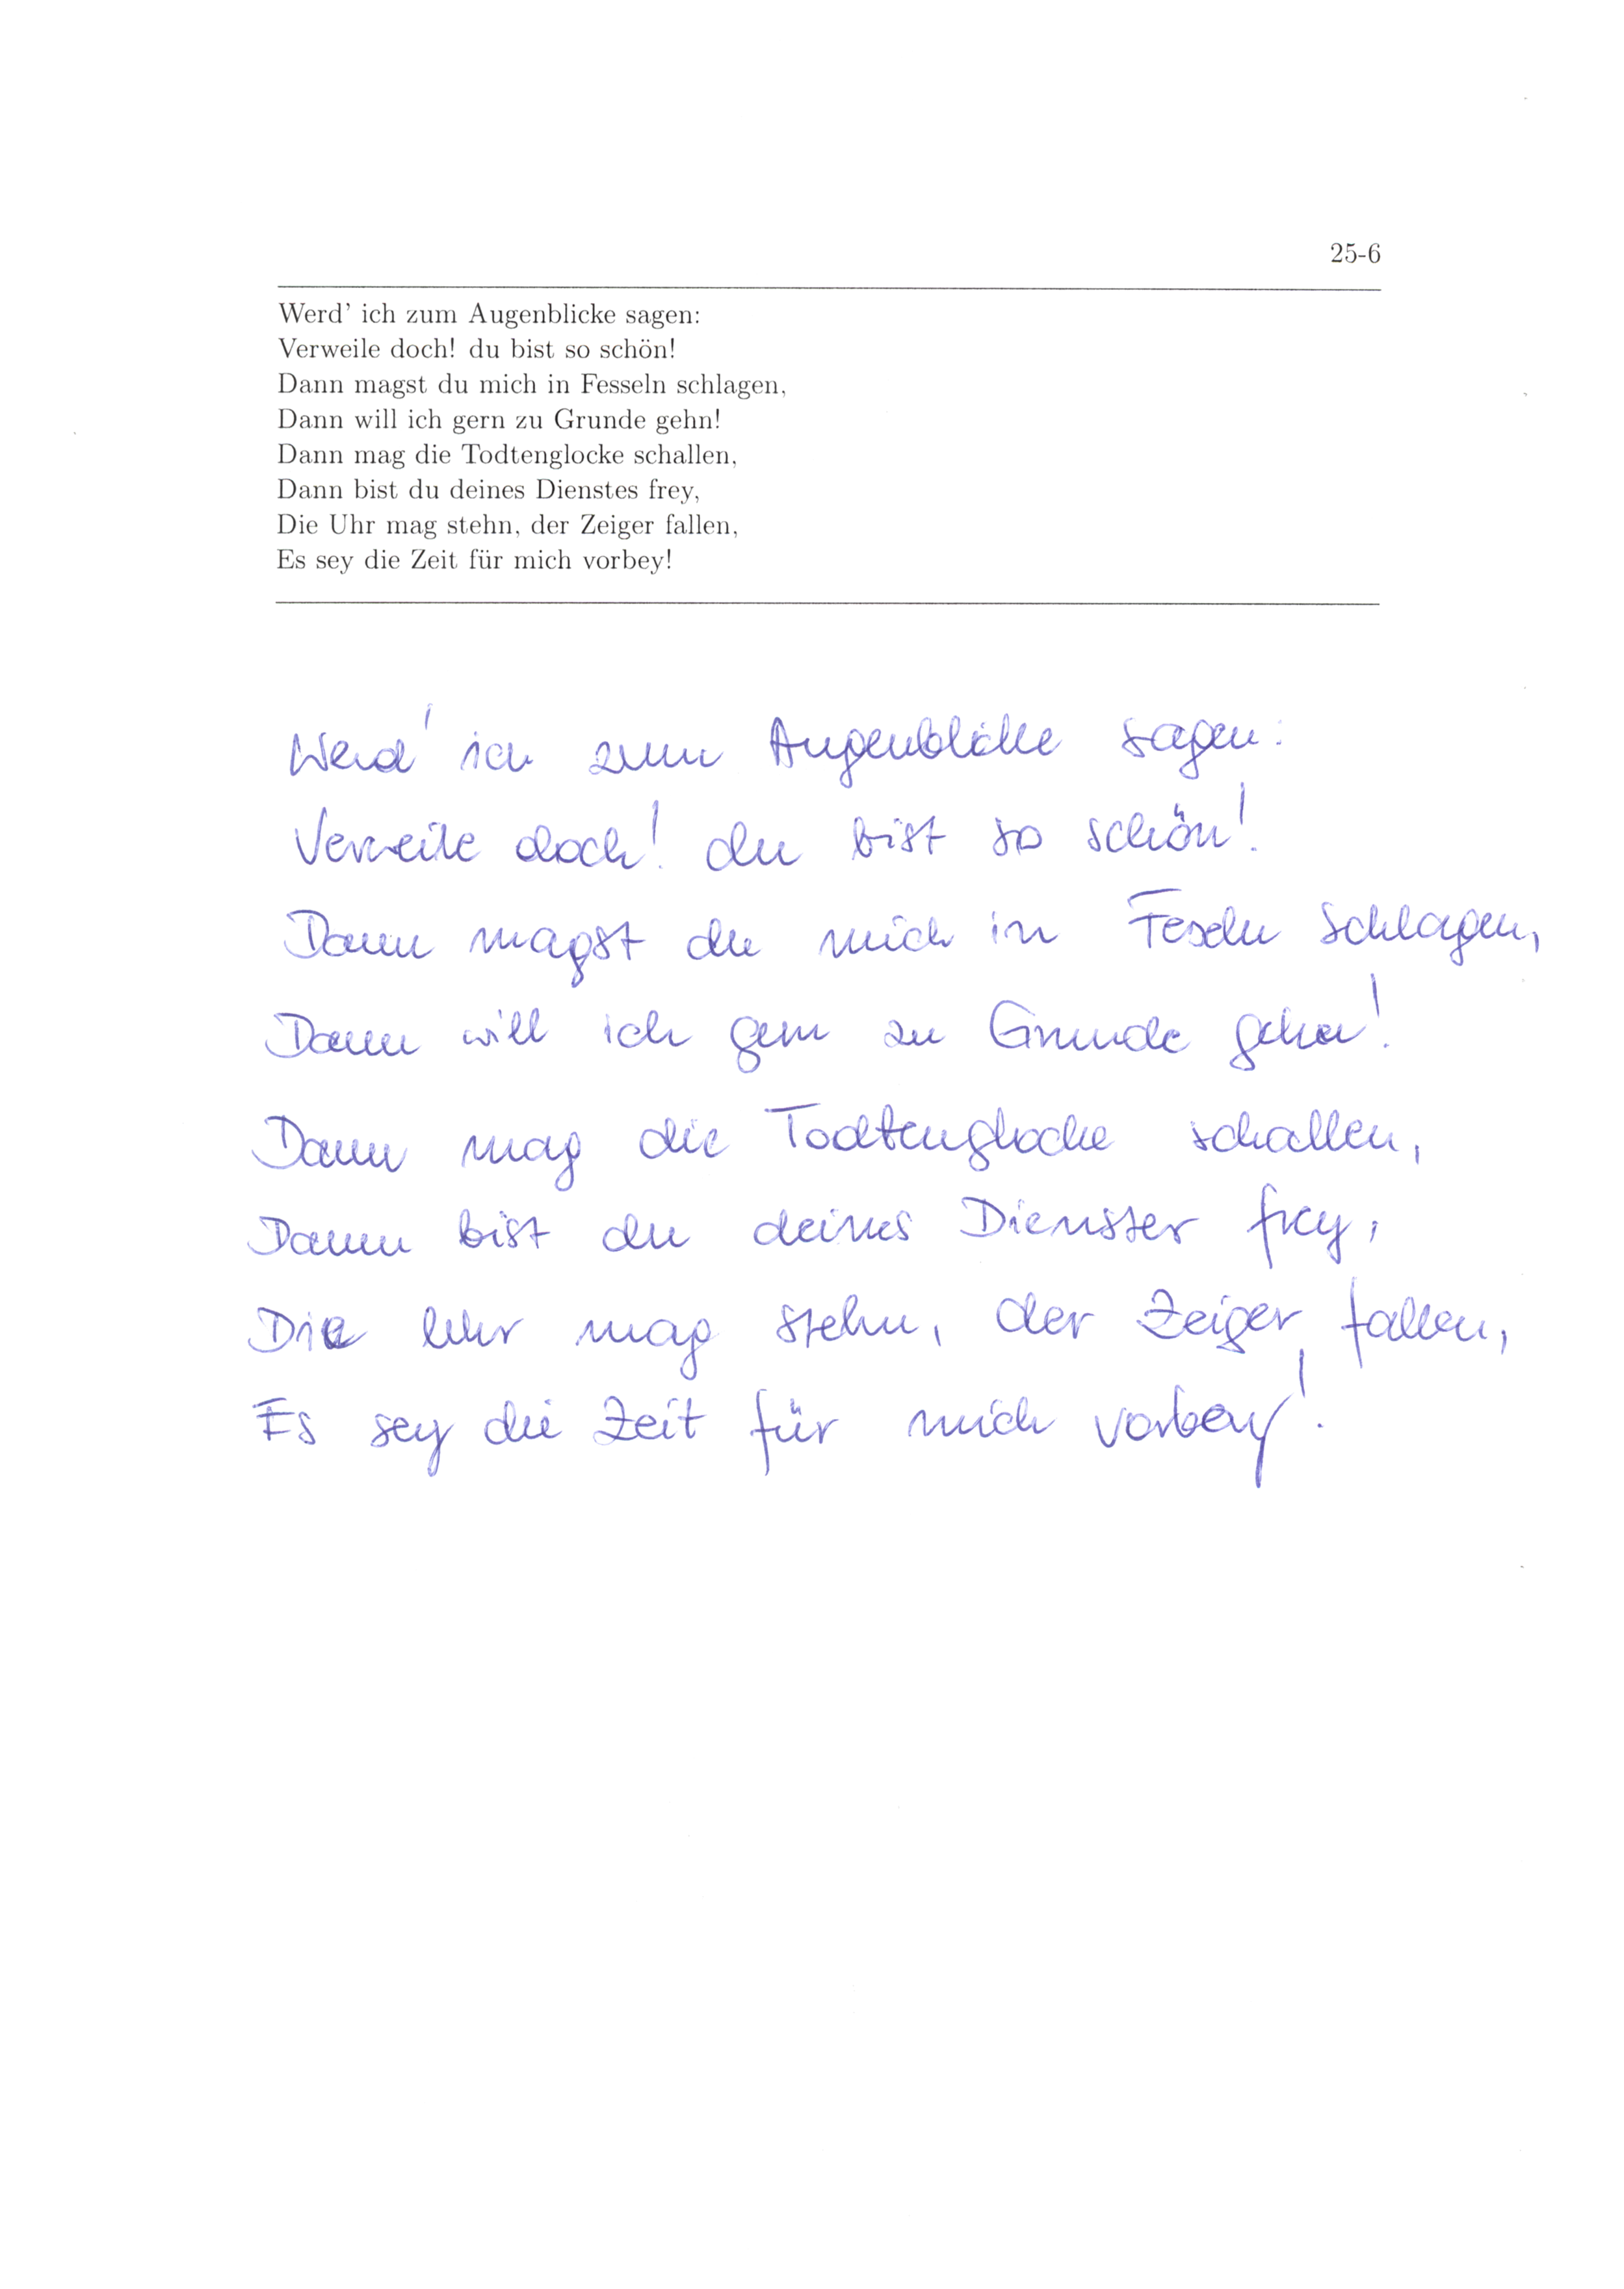 25-6
Werd' ich zum Augenblicke sagen:
Verweile doch! du bist so schön!
Dann magst du mich in Fesseln schlagen,
Dann will ich gern zu Grunde gehn!
Dann mag die Todtenglocke schallen,
Dann bist du deines Dienstes frey,
Die Uhr mag stehn, der Zeiger fallen,
Es sey die Zeit für mich vorbey!
Werd' ich zum Augenblicke sagen:
Verweile doch! du bist so schön!
Dann magst du mich in Feseln schlagen,
Dann will ich gern zu Grunde gehn!
Dann mag die Todtenglocke schallen,
Dann bist du deines Dienster frey,
Die Uhr mag stehn, der Zeiger fallen,
Es sey die Zeit für mich vorbey!